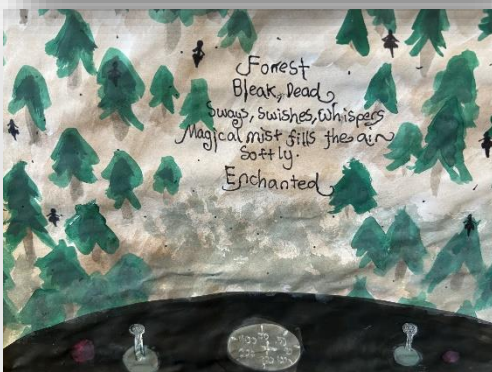 Forest
Bleak, Dead
Sways, Swishes, Whispers
Magical mist fills the air
Softly.
Enchanted